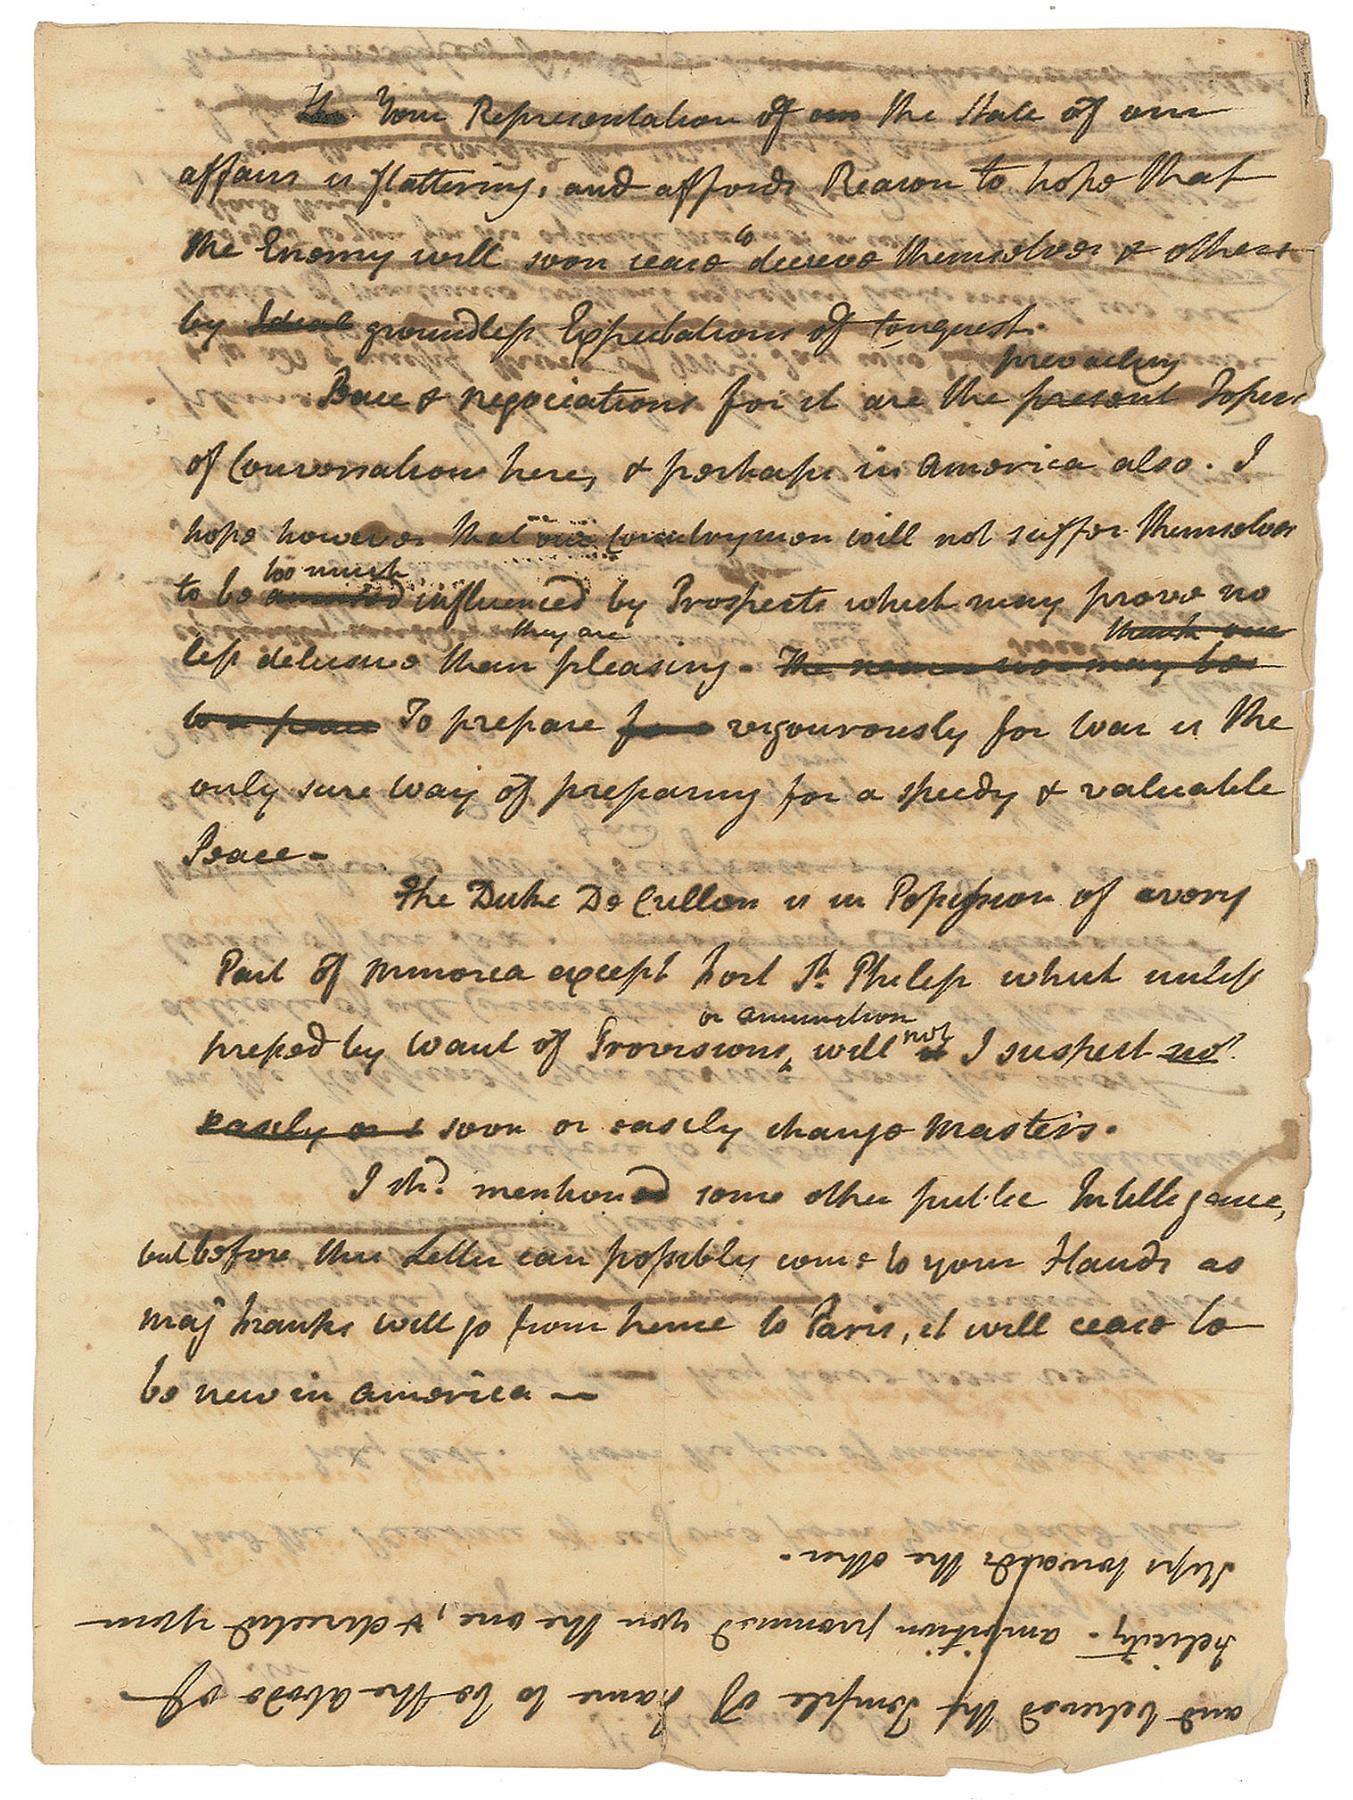 The Your Representation of our the State of our
affairs is flattering, and affords Reason to hope that
the Enemy will soon cease to decieve themselves & others
by Ideal groundless Expectations of Conquest.
prevailing
Peace & negociations for it are the present Topics
of Conversation here, & perhaps in America also. I
hope however that our Countrymen will not suffer themselves
too much
to be influenced by Prospects which may prove no
they are
less delusive than pleasing. The nearer we may be
think our
to a peace To prepare for vigourously for War is the
only sure way of preparing for a speedy & valuable
Peace.
The Duke De Crillon is in Possession of every
Part of Minorca except Fort St. Philip which unless
or amunition
pressed by want of Provisions, will not I suspect not
easily or s soon or easily change Masters.
I shd. mentioned some other public Intelligence,
but before this Letter can possibly come to your Hands as
Maj Franks will go from hence to Paris, it will cease to
be new in America —
and believed the Temple of Fame to be the abode of
Felicity. ambition promised you the one, & directed your
Steps towards the other.